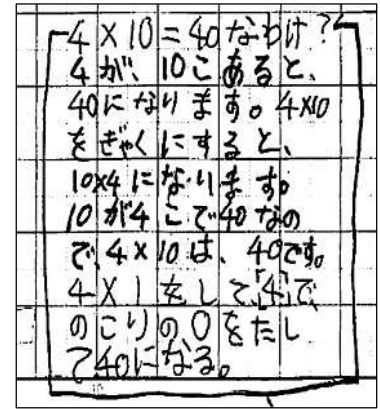 4×10=40なわけ?
4が、10こあると、
40になります。4×10
をぎゃくにすると、
10×4になります。
10が4こで40なの
で、4×10は、40です。
4×1をして「4」で、
のこりの0をたし
て40になる。